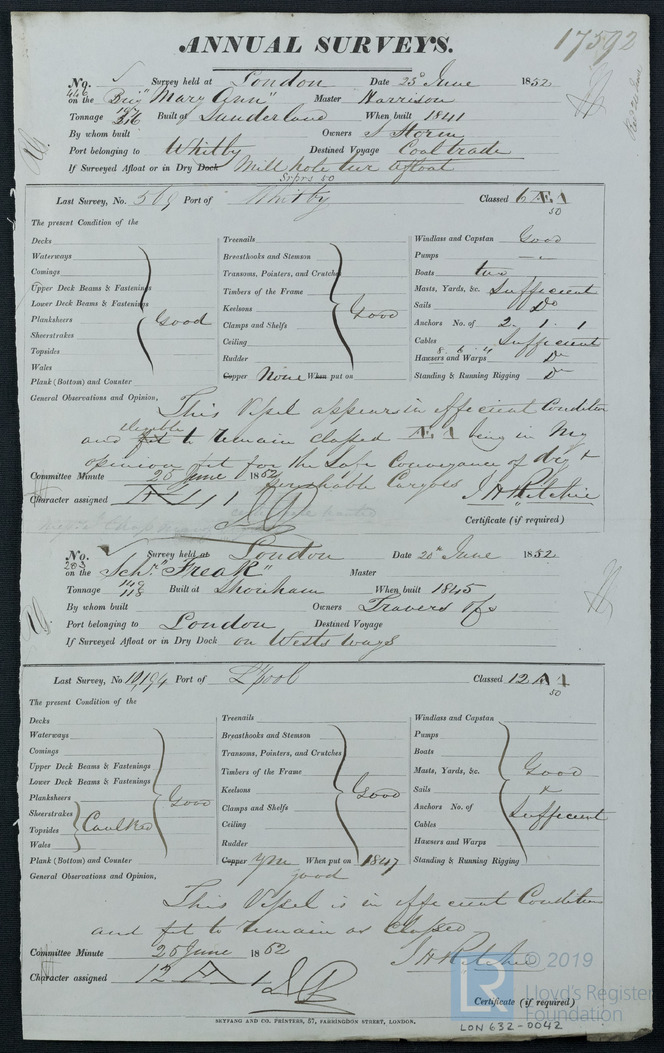 17592
ANNUAL SURVEYS.
No. 446 Survey held at London Date 23d June 1852
on the Brig "Mary Ann" Master Harrison
Tonnage 197 216 Built at Sunderland When built 1841
By whom built Owners J Storm
Port belonging to Whitby Destined Voyage Coal trade
If Surveyed Afloat or in Dry Dock Mill hole tier afloat
Srprs 50
Last Survey, No. 509 Port of Whitby Classed 6 Æ 1
50
The present Condition of the
Decks
Waterways
Comings
Upper Deck Beams & Fastenings
Lower Deck Beams & Fastenings
Planksheers Good
Sheerstrakes
Topsides
Wales
Plank (Bottom) and Counter
Treenails
Breasthooks and Stemson
Transoms, Pointers, and Crutches
Timbers of the Frame
Keelsons Good
Clamps and Shelfs
Ceiling
Rudder
Copper None When put on
Windlass and Capstan Good
Pumps
Boats two
Masts, Yards, &c. Sufficient
Sails Do
Anchors No. of 2. 1. 1
Cables Sufficient
Hawsers and Warps Do
Standing & Running Rigging Do
General Observations and Opinion, This Vessel appears in efficient Condition
eligible
and fit to remain classed Æ 1 being in my
opinion fit for the Safe Conveyance of dry &
perishable Cargoes
Committee Minute 25 June 1852
Character assigned Æ 1
J H Ritchie
Certificate (if required)
No. 203 Survey held at London Date 20th June 1852
on the Schr. "Freak" Master
Tonnage 149 118 Built at Shoreham When built 1845
By whom built Owners Travers &c
Port belonging to London Destined Voyage
If Surveyed Afloat or in Dry Dock on Wests ways
Last Survey, No 10,194 Port of L'pool Classed 12 A 1
50
The present Condition of the
Decks
Waterways
Comings
Upper Deck Beams & Fastenings
Lower Deck Beams & Fastenings
Planksheers Good
Sheerstrakes
Topsides Caulked
Wales
Plank (Bottom) and Counter
Treenails
Breasthooks and Stemson
Transoms, Pointers, and Crutches
Timbers of the Frame
Keelsons Good
Clamps and Shelfs
Ceiling
Rudder
Copper ym When put on 1847
good
Windlass and Capstan
Pumps
Boats
Masts, Yards, &c. Good
Sails &
Anchors No. of Sufficient
Cables
Hawsers and Warps
Standing & Running Rigging
General Observations and Opinion,
This Vessel is in efficient Condition
and fit to remain as classed
Committee Minute 25 June 1852
Character assigned 12 A 1
J H Ritchie
Certificate (if required)
SEYFANG AND CO. PRINTERS, 57, FARRINGDON STREET, LONDON.
LR © 2019
Lloyd's Register
Foundation
LON 632-0042